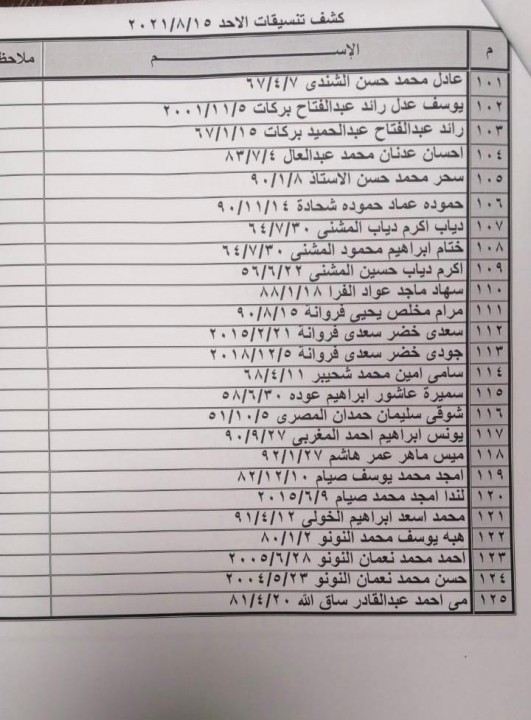 كشف تنسيقات الاحد ٢٠٢١/٨/١٥
م الإســـــــــــــــــــم ملاحظ
١٠١ عادل محمد حسن الشندى ٦٧/٤/٧
١٠٢ يوسف عدل رائد عبدالفتاح بركات ٢٠٠١/١١/٥
١٠٣ رائد عبدالفتاح عبدالحميد بركات ٦٧/١/١٥
١٠٤ احسان عدنان محمد عبدالعال ٨٣/٧/٤
١٠٥ سحر محمد حسن الاستاذ ٩٠/١/٨
١٠٦ حموده عماد حموده شحادة ٩٠/١١/١٤
١٠٧ دياب اكرم دياب المشنى ٦٤/٧/٣٠
١٠٨ ختام ابراهيم محمود المشنى ٦٤/٧/٣٠
١٠٩ اكرم دياب حسين المشنى ٥٦/٦/٢٢
١١٠ سهاد ماجد عواد الفرا ٨٨/١/١٨
١١١ مرام مخلص يحيى فروانة ٩٠/٨/١٥
١١٢ سعدى خضر سعدى فروانة ٢٠١٥/٢/٢١
١١٣ جودى خضر سعدى فروانة ٢٠١٨/١٢/٥
١١٤ سامى امين محمد شحيبر ٦٨/٤/١١
١١٥ سميرة عاشور ابراهيم عوده ٥٨/٦/٣٠
١١٦ شوقى سليمان حمدان المصرى ٥١/١٠/٥
١١٧ يونس ابراهيم احمد المغربي ٩٠/٩/٢٧
١١٨ ميس ماهر عمر هاشم ٩٢/١/٢٧
١١٩ امجد محمد يوسف صيام ٨٢/١٢/١٠
١٢٠ لندا امجد محمد صيام ٢٠١٥/٦/٩
١٢١ محمد اسعد ابراهيم الخولى ٩١/٤/١٢
١٢٢ هبه يوسف محمد النونو ٨٠/١/٢
١٢٣ احمد محمد نعمان النونو ٢٠٠٥/٦/٢٨
١٢٤ حسن محمد نعمان النونو ٢٠٠٤/٥/٢٣
١٢٥ مى احمد عبدالقادر ساق الله ٨١/٤/٢٠